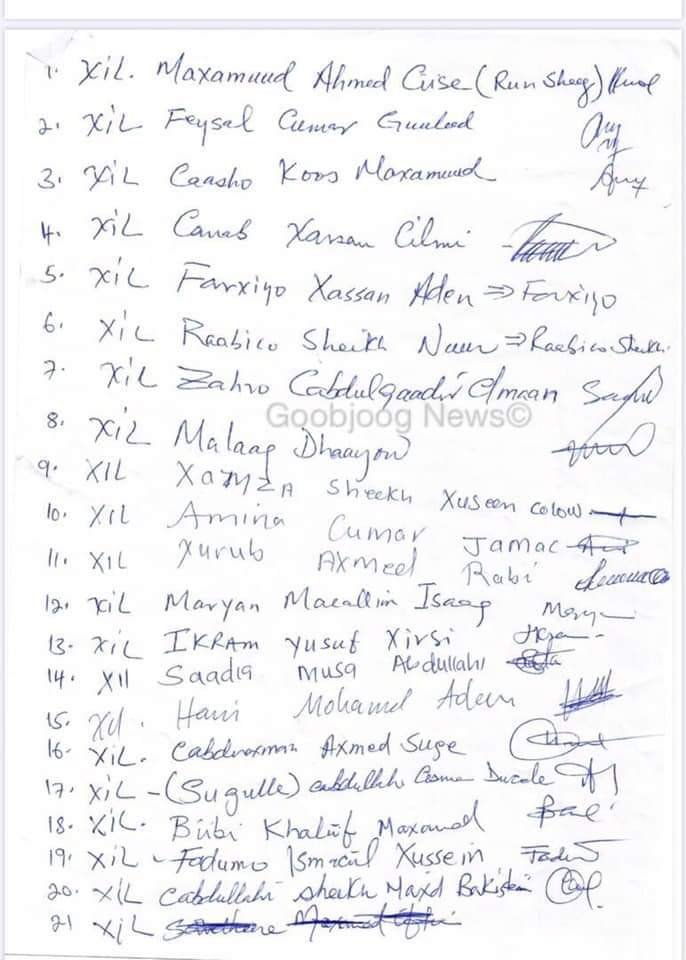 1. XiL. Maxamuud Ahmed Ciise (Run Sheeg)
2. XiL Feysal Cumar Guuleed
3. XiL Caasho Koos Maxamuud
4. XiL Canab Xassan Cilmi
5. XiL Farxiyo Xassan Aden => Farxiyo
6. XiL Raabico Sheikh Nuur => Raabico Sheikh
7. XiL Zahro Cabdulqaadir
Goobjoog News©
8. XiL Malaaq Dhaayow
9. XIL XAMZA Sheekh Xuseen Colow
10. XIL Amina Cumar Jamac
11. XIL Xurub Axmed Rabi
12. XiL Maryan Macallin Isaaq
13. XiL IKRAM Yusuf Xirsi
14. XIL Saadia Musa Abdullahi
15. XiL. Hani Mohamed Aden
16. XiL. Cabduraxman Axmed Suge
17. XiL - (Sugulle) Cabdullahi
18. XiL. Biibi Khaliif Maxamed
19. XiL - Fadumo Ismaciil Xussein
20. XiL Cabdullahi Sheikh
21 XiL